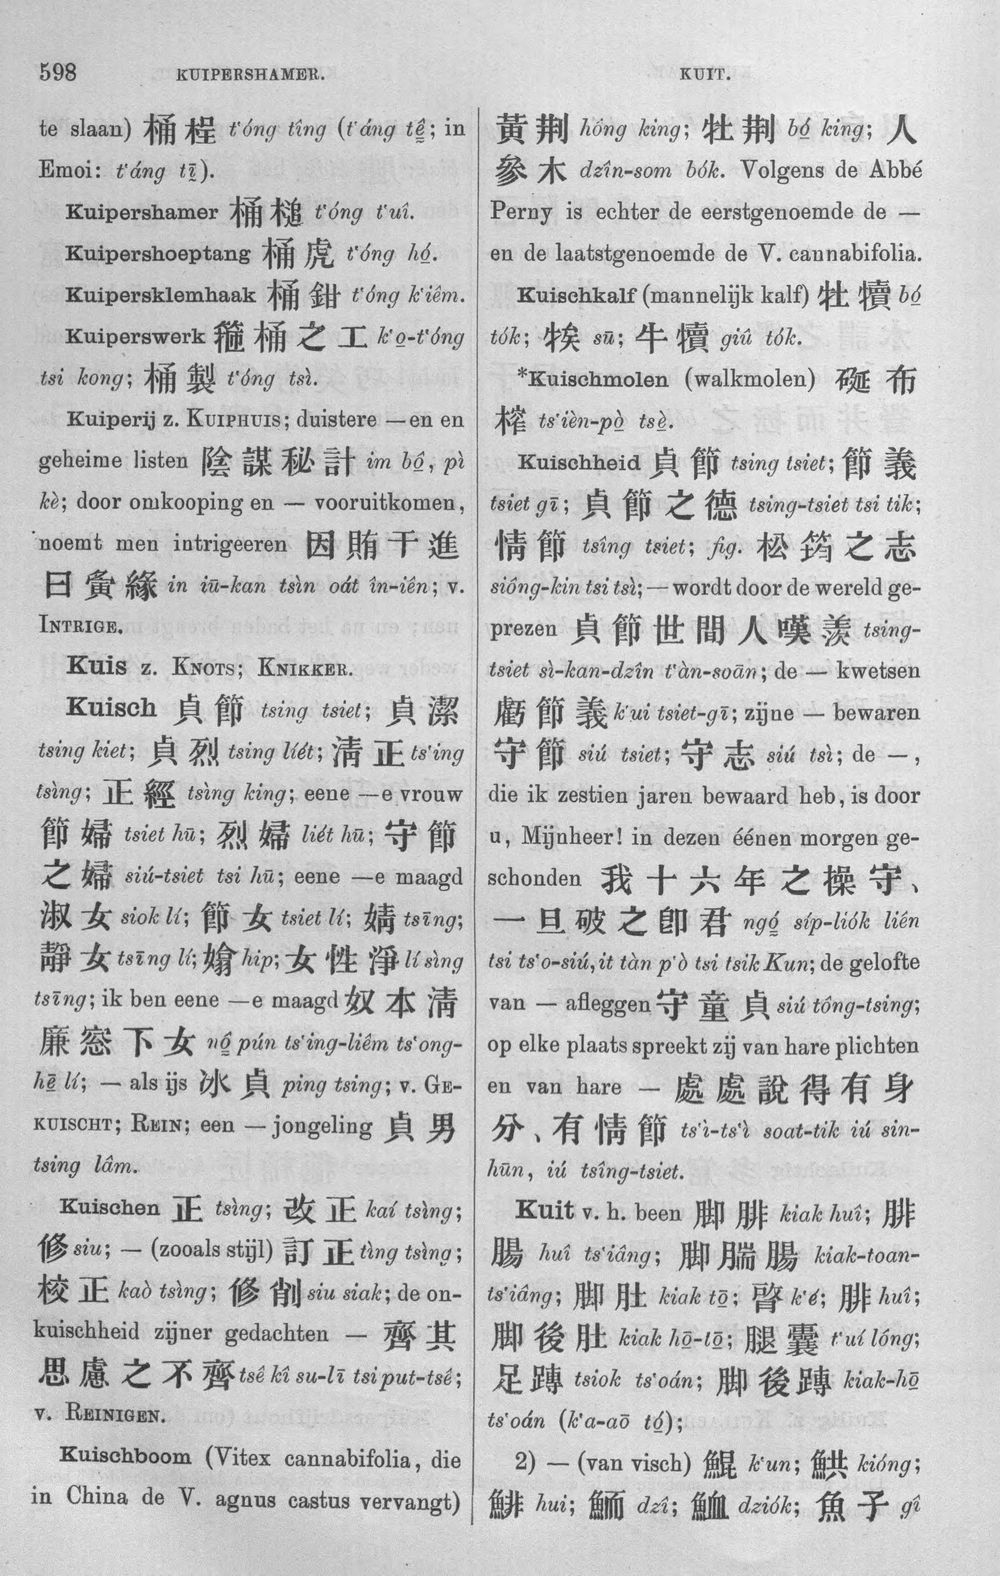 598 KUIPERSHAMER. KUIT.
te slaan) 桶桯 t'óng tîng (t'áng tê̤; in
Emoi: t'áng tī̤).
Kuipershamer 桶槌 t'óng t'uî.
Kuipershoeptang 桶虎 t'óng hó̤.
Kuipersklemhaak 桶鉗 t'óng k'iêm.
Kuiperswerk 箍桶之工 k'o̤-t'óng
tsi kong; 桶製 t'óng tsì.
Kuiperij z. KUIPHUIS; duistere —en en
geheime listen 陰謀秘計 im bô̤, pì
kè; door omkooping en — vooruitkomen,
noemt men intrigeeren 因賄干進
曰夤緣 in iū-kan tsìn oát în-iên; v.
INTRIGE.
Kuis z. KNOTS; KNIKKER.
Kuisch 貞節 tsing tsiet; 貞潔
tsing kiet; 貞烈 tsing liét; 淸正 ts'ing
tsìng; 正經 tsìng king; eene —e vrouw
節婦 tsiet hū; 烈婦 liét hū; 守節
之婦 siú-tsiet tsi hū; eene —e maagd
淑女 siok lí; 節女 tsiet lí; 婧 tsīng;
靜女 tsīng lí; 㛍 hip; 女性淨 lí sìng
tsīng; ik ben eene —e maagd 奴本淸
廉窓下女 nô̤ pún ts'ing-liêm ts'ong-
hē̤ lí; — als ijs 冰貞 ping tsing; v. GE-
KUISCHT; REIN; een — jongeling 貞男
tsing lâm.
Kuischen 正 tsìng; 改正 kaí tsìng;
修 siu; — (zooals stijl) 訂正 tìng tsìng;
校正 kaò tsìng; 修削 siu siak; de on-
kuischheid zijner gedachten — 齊其
思慮之不齊 tsê kî su-lī tsi put-tsê;
v. REINIGEN.
Kuischboom (Vitex cannabifolia, die
in China de V. agnus castus vervangt)
黃荆 hông king; 牡荆 bó̤ king; 人
參木 dzîn-som bók. Volgens de Abbé
Perny is echter de eerstgenoemde de —
en de laatstgenoemde de V. cannabifolia.
Kuischkalf (mannelijk kalf) 牡犢 bó̤
tók; 㹑 sū; 牛犢 giû tók.
*Kuischmolen (walkmolen) 硟布
榨 ts'ièn-pò̤ tsè̤.
Kuischheid 貞節 tsing tsiet; 節義
tsiet gī; 貞節之德 tsing-tsiet tsi tik;
情節 tsîng tsiet; fig. 松筠之志
siông-kin tsi tsì; — wordt door de wereld ge-
prezen 貞節世間人嘆羨 tsing-
tsiet sì-kan-dzîn t'àn-soān; de — kwetsen
虧節義 k'ui tsiet-gī; zijne — bewaren
守節 siú tsiet; 守志 siú tsì; de —,
die ik zestien jaren bewaard heb, is door
u, Mijnheer! in dezen éénen morgen ge-
schonden 我十六年之操守、
一旦破之卽君 ngó̤ síp-liók lién
tsi ts'o-siú, it tàn p'ò tsi tsik Kun; de gelofte
van — afleggen 守童貞 siú tông-tsing;
op elke plaats spreekt zij van hare plichten
en van hare — 處處說得有身
分、有情節 ts'ì-ts'ì soat-tik iú sin-
hūn, iú tsîng-tsiet.
Kuit v. h. been 脚腓 kiak huî; 腓
腸 huî ts'iâng; 脚腨腸 kiak-toan-
ts'iâng; 脚肚 kiak tō̤; 䏿 k'é; 腓 huî;
脚後肚 kiak hō̤-tō̤; 腿囊 t'uí lông;
足䠉 tsiok ts'oán; 脚後䠉 kiak-hō̤
ts'oán (k'a-aō tó̤);
2) — (van visch) 鯤 k'un; 䱋 kióng;
鯡 hui; 鮞 dzî; 䱓 dziók; 魚子 gî